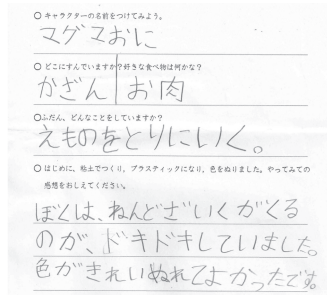 ○ キャラクターの名前をつけてみよう。
マグマおに
○ どこにすんでいますか？好きな食べ物は何かな？
かざん お肉
○ふだん、どんなことをしていますか？
えものをとりにいく。
○ はじめに、粘土でつくり、プラスティックになり、色をぬりました。やってみての
感想をおしえてください。
ぼくは、ねんどざいくがくる
のが、ドキドキしていました。
色がきれいぬれてよかったです。